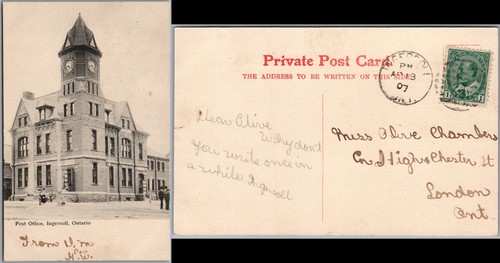 Post Office, Ingersoll, Ontario
From V. M
Private Post Card
THE ADDRESS TO BE WRITTEN ON THIS SIDE.
INGERSOLL
PM
07
ONT.
Dear Olive
Why don't
you write once in
a while Ingersoll
Miss Olive Chamber
Cor High & Chester St
London
Ont.